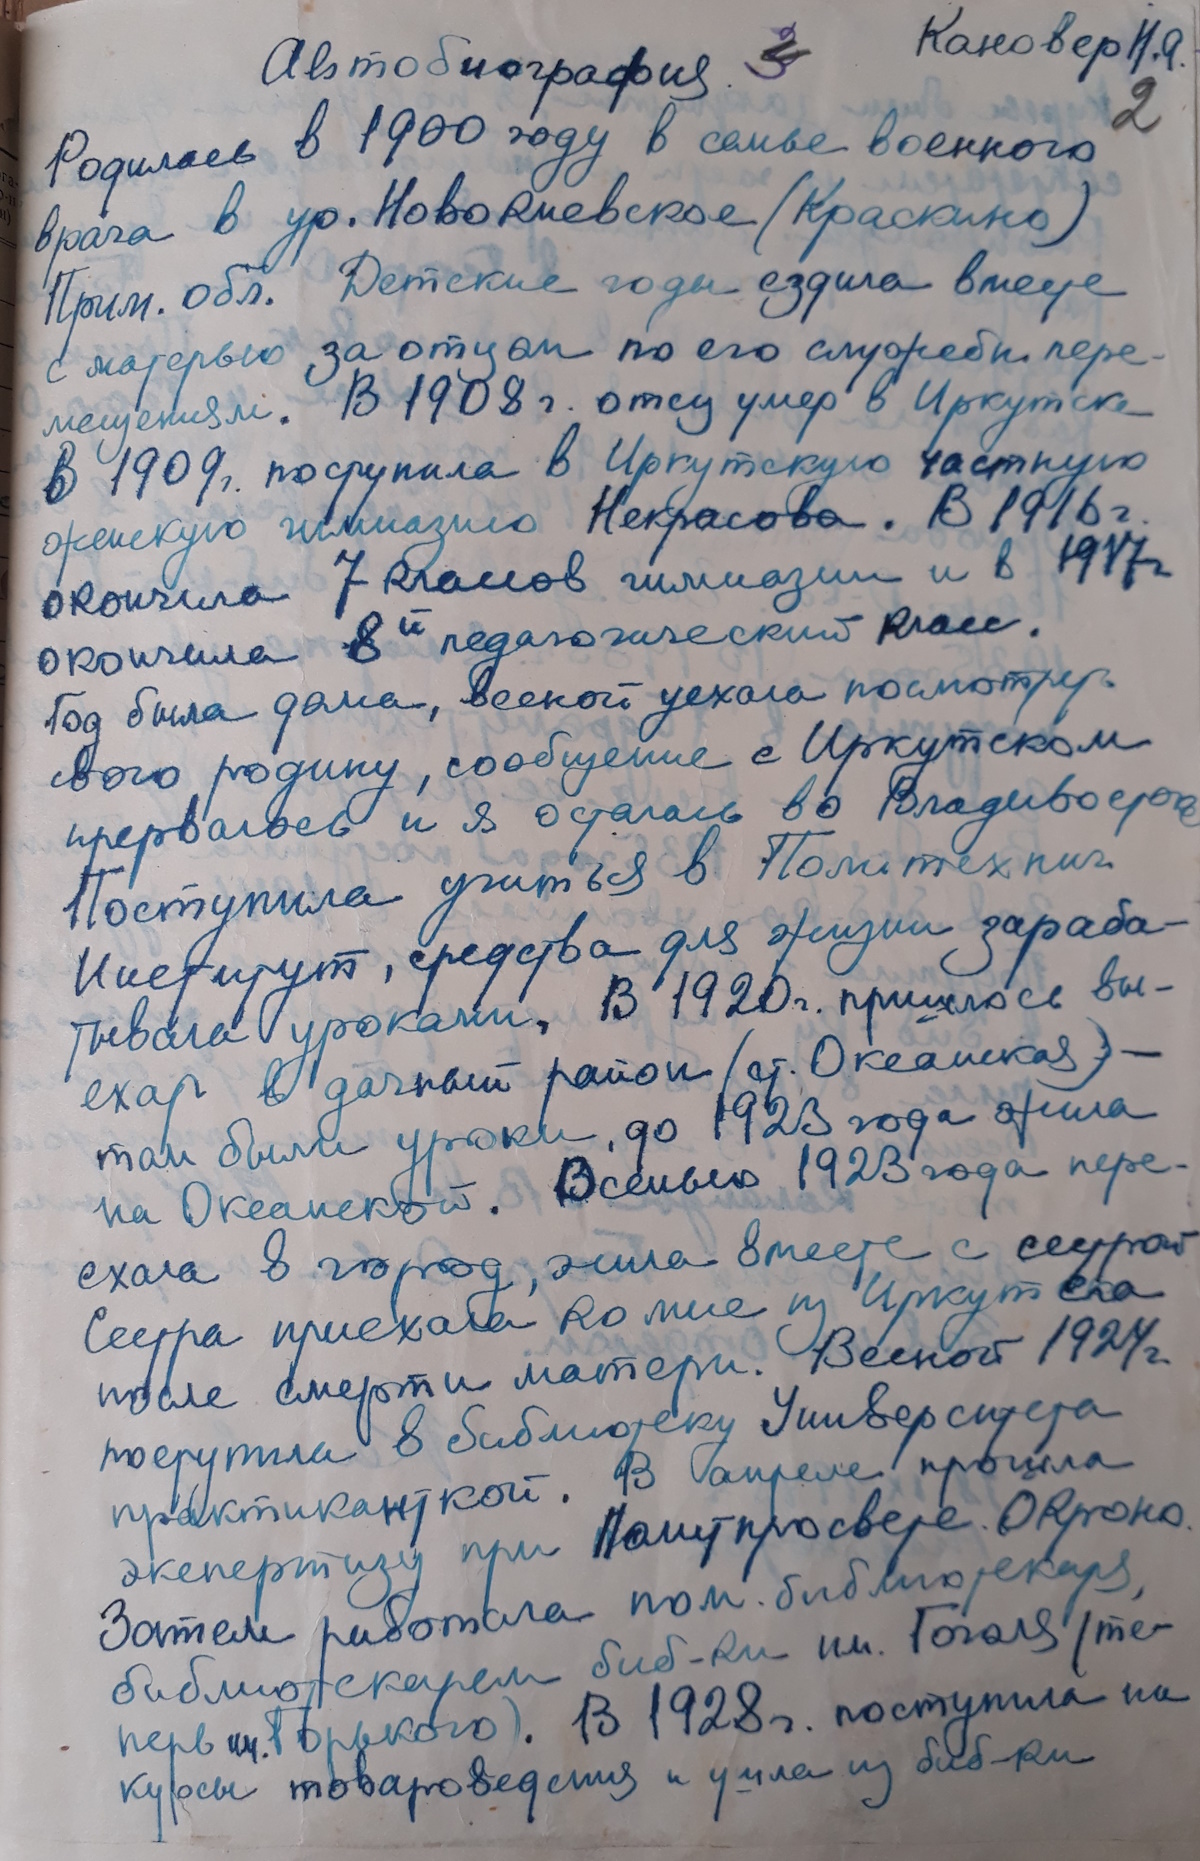 Кановер Н.А.
Автобиография 3
2
Родилась в 1900 году в семье военного
врача в ур. Новокиевское (Краскино)
Прим. обл. Детские годы ездила вместе
с матерью за отцом по его служебн. пере-
мещениям. В 1908 г. отец умер в Иркутске
В 1909 г. поступила в Иркутскую частную
женскую гимназию Некрасова. В 1916 г.
окончила 7 классов гимназии и в 1917 г
окончила 8й педагогический класс.
Год была дома, весной уехала посмотреть
свою родину, сообщение с Иркутском
прервалось и я осталась во Владивостоке
Поступила учиться в Политехнич.
Институт, средства для жизни зараба-
тывала уроками. В 1920 г. пришлось вы-
ехать в дачный район (ст. Океанская) —
там были уроки, до 1923 года жила
на Океанской. Осенью 1923 года пере-
ехала в город, жила вместе с сестрой
Сестра приехала ко мне из Иркутска
после смерти матери. Весной 1924 г.
поступила в библиотеку Университета
практиканткой. В апреле прошла
экспертизу при Политпросвете Окроно.
Затем работала пом. библиотекаря,
библиотекарем биб-ки им. Гоголя (те-
перь им. Горького). В 1928 г. поступила на
курсы товароведения и ушла из биб-ки